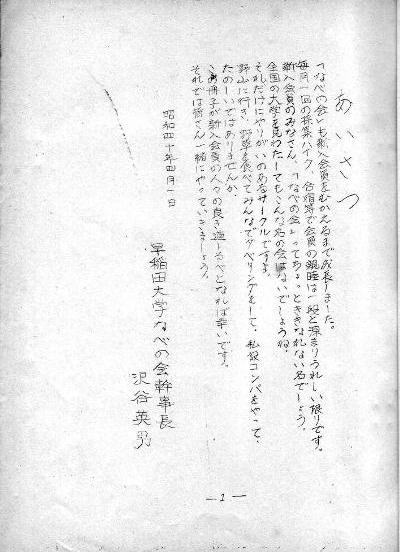 あいさつ
「なべの会」も新入会員をむかえるまで成長しました。
毎月一回の採集ハイク、合宿等で会員の親睦は一段と深まりうれしい限りです。
新入会員のみなさん、「なべの会」ってちょっとききなれない名でしょう。
全国の大学を見わたしてもこんな名の会はないでしょうね。
それだけにやりがいのあるサークルですよ。
野山に行き、野草を食べてみんなでダベリングをして、私設コンパをやって、
たのしいではありませんか。
この冊子が新入会員の人々の良き道しるべとなれば幸いです。
それでは皆さん一緒にやっていきましょう。
昭和四十年四月一日
早稲田大学なべの会幹事長
沢谷英
—1—